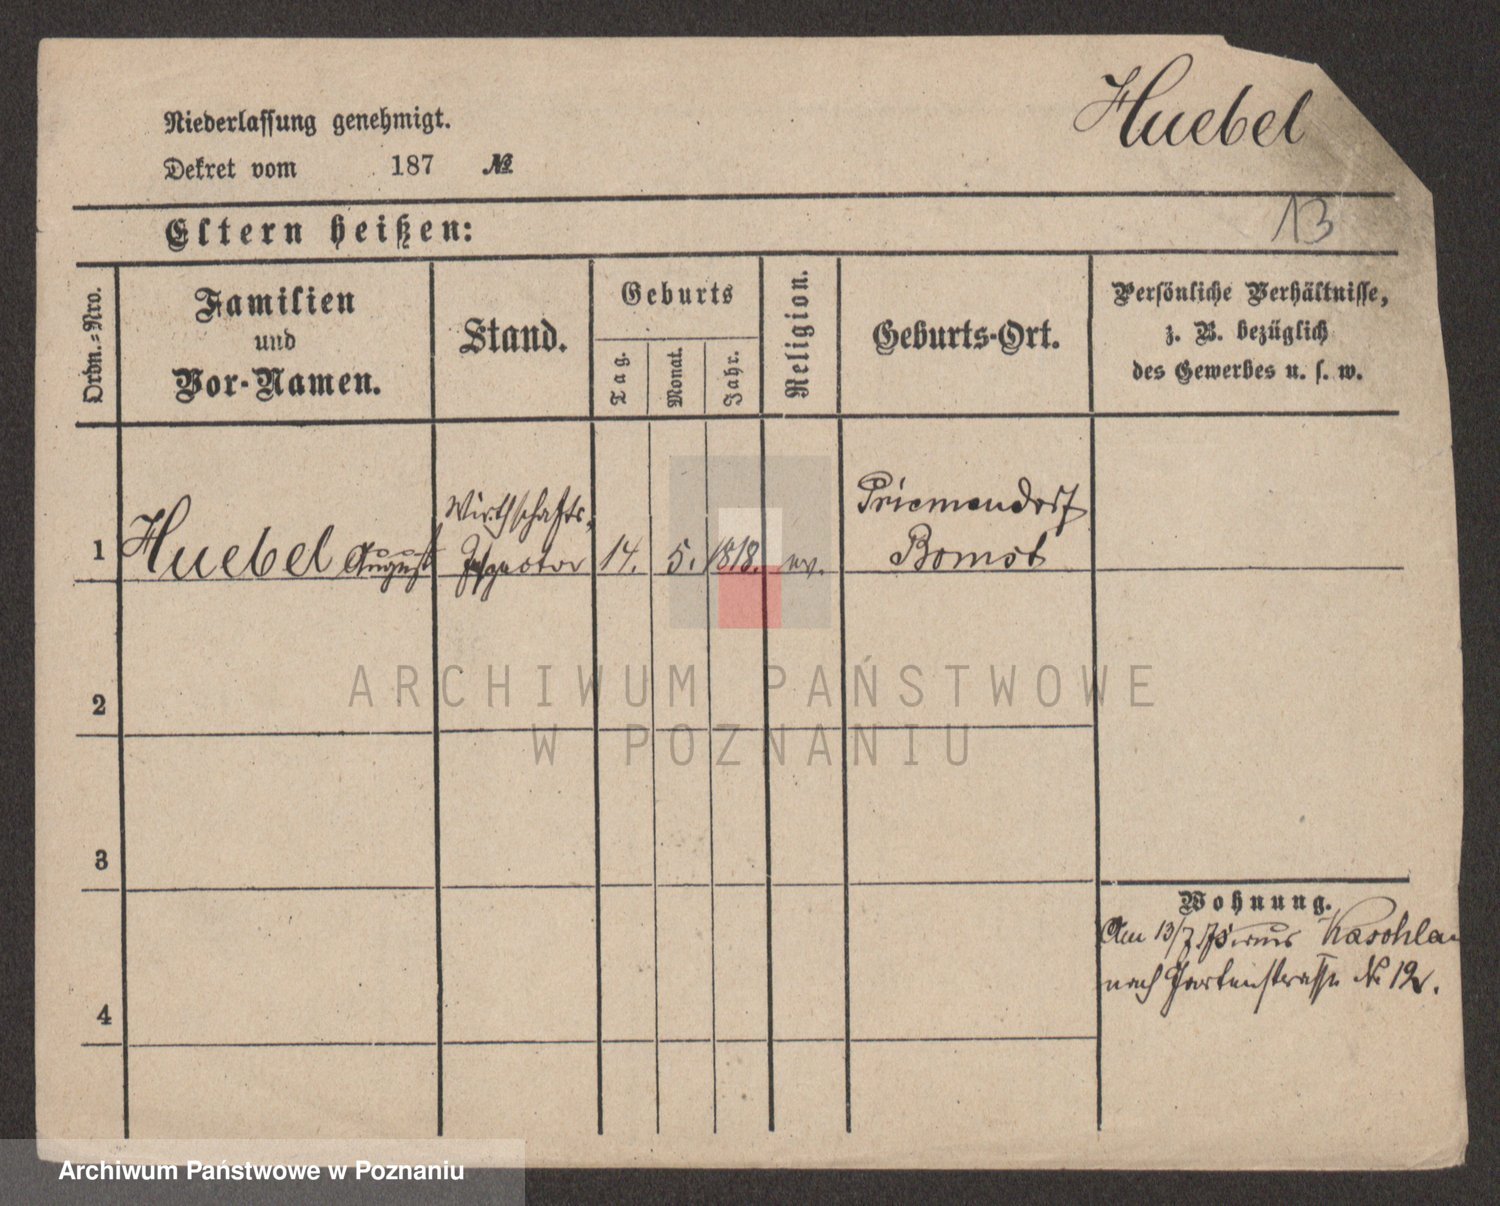 Huebel
Niederlassung genehmigt.
Dekret vom 187 №
13
Eltern heißen:
Ordn.-Nro.
Familien
und
Vor-Namen.
Stand.
Geburts
Tag.
Monat.
Jahr.
Religion.
Geburts-Ort.
Persönliche Verhältnisse,
z. B. bezüglich
des Gewerbes u. s. w.
1 Huebel August
Wirthschafts-
Inspector
14. 5. 1818. ev.
Priemendorf
Bomst
2
3
4
Wohnung.
Am 13/7 75 aus
nach Gartenstrasse № 12.
ARCHIWUM PAŃSTWOWE
W POZNANIU
Archiwum Państwowe w Poznaniu